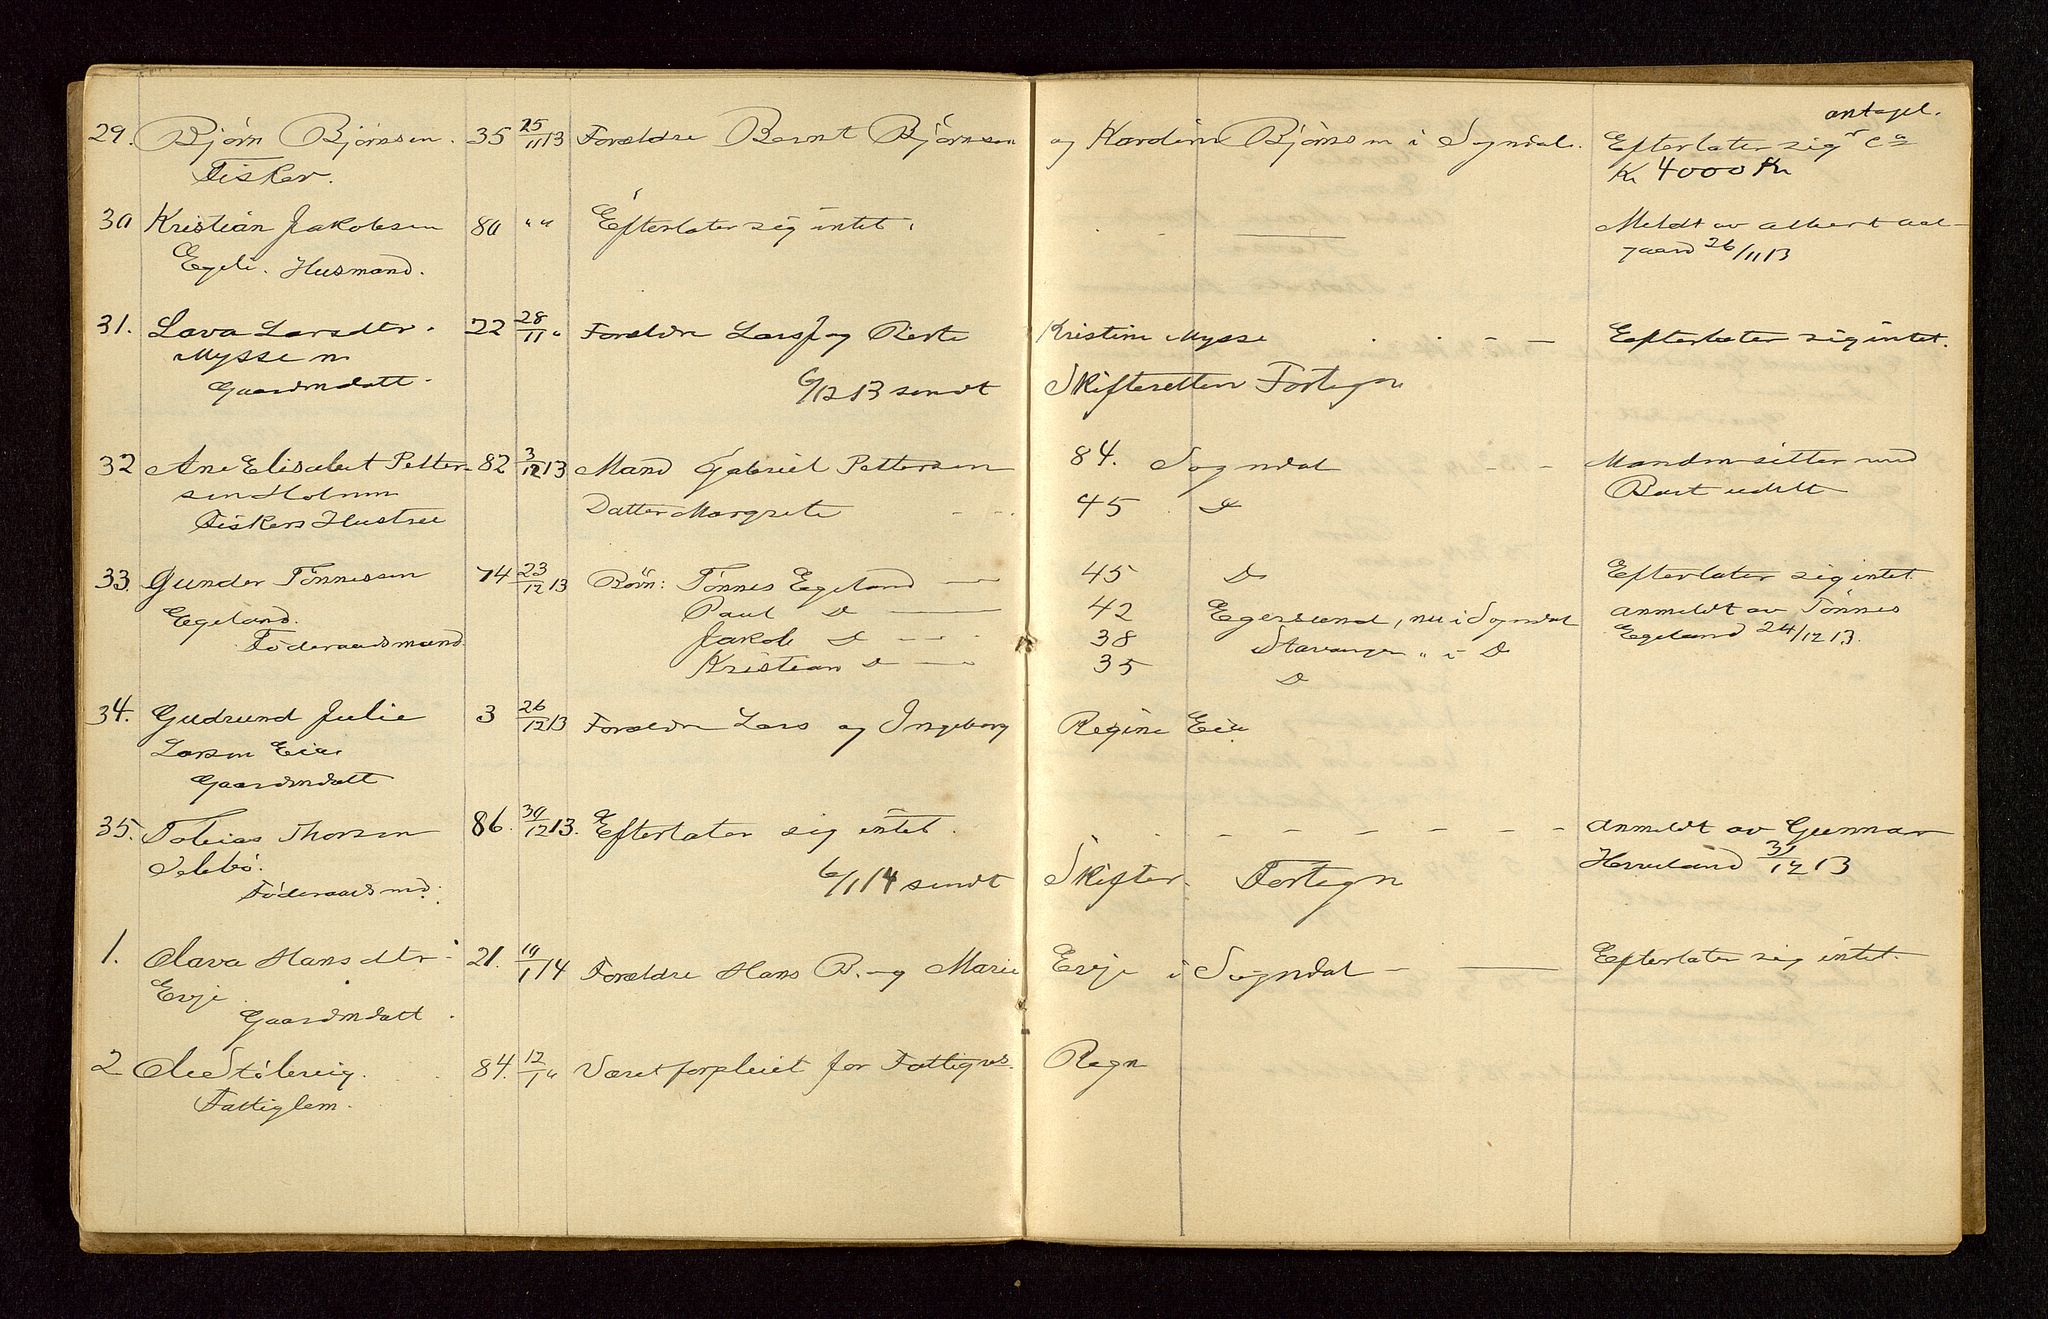 29. Bjørn Bjørnsen. 35 25/11 13 Forældre Bernt Bjørnsen og Kardine Bjørnsen i Sogndal. Efterlater sig antagel. ca
Fisker. Kr 4000 Kr
30 Kristian Jakobsen 80 " " Efterlater sig intet. Meldt av Albert Aal-
Egeli. Husmand. gaard 26/11 13
31. Lava Larsdtr. 22 28/11 " Forældre Lars J og Berte Kristine Mysse Efterlater sig intet.
Mysse
Gaardmdatt. 6/12 13 sendt Skifteretten Fortegn
32 Ane Elisabet Petter- 82 3/12 13 Mand Gabriel Pettersen 84. Sogndal Manden sitter med
sen Holmen Datter Margrete 45 D Boet udelt
Fiskers Hustru
33. Gunder Tønnessen 74 23/12 13 Børn: Tønnes Egeland 45 D Efterlater sig intet
Egeland. Paul D 42 Egersund, nu i Sogndal anmeldt av Tønnes
Føderaadsmand. Jakob D 38 Stavanger " i D Egeland 24/12 13.
Kristian D 35 D
34. Gudrund Julie 3 26/12 13 Forældre Lars og Ingeborg Regine Eie
Larsen Eie
Gaardmdatt
35. Tobias Thorsen 86. 30/12 13. Efterlater sig intet. Anmeldt av Gunnar
Selebø. Hveland 31/12 13
Føderaadsmd. 6/1 14 sendt Skifter. Fortegn
1. Lava Hansdtr 21. 10/1 14 Forældre Hans B. og Marie Evje i Sogndal Efterlater sig intet.
Evje
Gaardmdatt.
2 Ole Stølsvig. 84. 12/1 " Været forpleiet for Fattigvæs. Regn
Fattiglem.